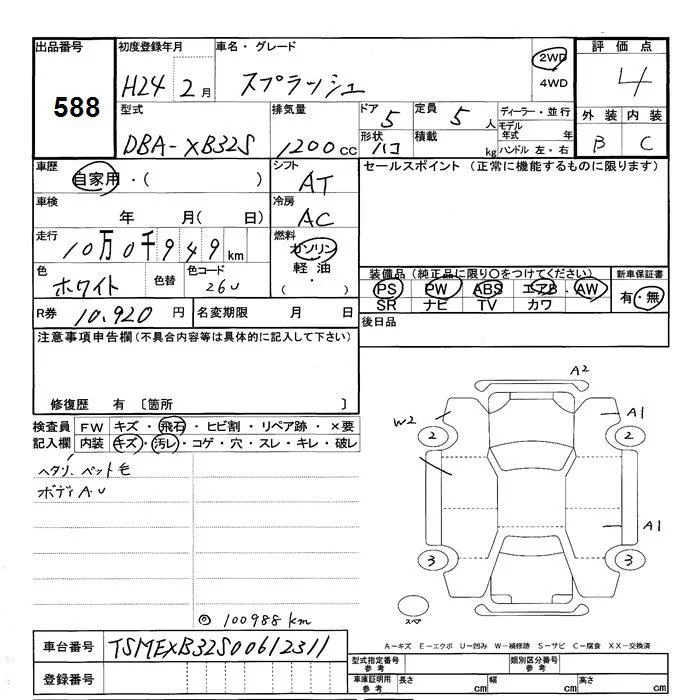 出品番号 初度登録年月 車名・グレード 2WD 評価点
588 H24 2月 スプラッシュ 4WD 4
型式 排気量 ドア 5 定員 5人 ディーラー・並行 外装 内装
DBA-XB32S 1200cc 形状 ハコ 積載 kg モデル年式 年 B C
ハンドル 左・右
車歴 シフト セールスポイント (正常に機能するものに限ります)
自家用・( ) AT
車検 冷房
年 月( 日) AC
走行 燃料
10万0千949km ガソリン
色 色替 色コード 軽油 装備品(純正品に限り○をつけてください) 新車保証書
ホワイト 26U ・( ) PS PW ABS エアB AW 有・無
SR ナビ TV カワ
R券 10,920円 名変期限 月 日 後日品
注意事項申告欄(不具合内容等は具体的に記入して下さい)
修復歴 有 〔箇所 〕
検査員 FW キズ・飛石・ヒビ割・リペア跡・×要
記入欄 内装 キズ・汚レ・コゲ・穴・スレ・キレ・破レ
ヘタリ. ペット毛
ボディA.U
A2
W2 A1
2 2
A1
3 3
スペア
◎ 100988km
A-キズ E-エクボ U-凹み W-補修跡 S-サビ C-腐食 XX-交換済
車台番号 TSMEXB32S00612311
型式指定番号 参考 類別区分番号 参考
登録番号 車庫証明用 参考 長さ cm 幅 cm 高さ cm